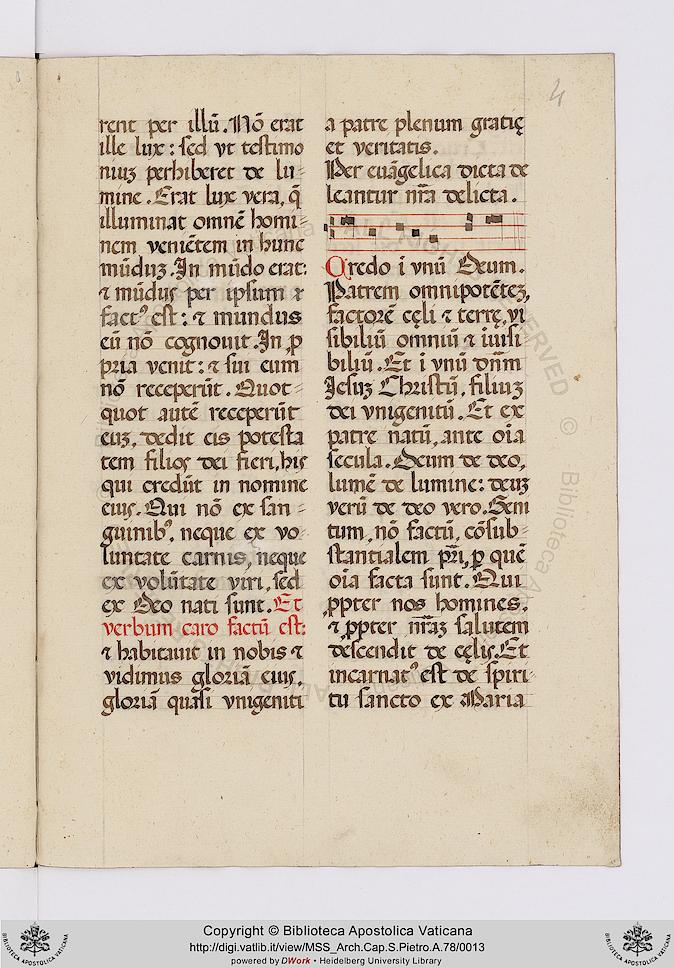 4
rent per illū. Nō erat
ille lux: sed vt testimo
niuȝ perhiberet de lu-
mine. Erat lux vera, q̄
illuminat omnē homi-
nem veniētem in hunc
mūduȝ. In mūdo erat:
⁊ mūduſ per ipſum x
fact⁹ eſt: ⁊ mundus
eū nō cognouit. In ꝓ
pria venit: ⁊ ſui eum
nō receperūt. Quot-
quot autē receperūt
euȝ, dedit eis poteſta
tem filioſ dei fieri, hiſ
qui credūt in nomine
eiuſ. Qui nō ex ſan-
guinib⁹, neque ex vo-
luntate carnis, neque
ex volūtate viri, ſed
ex Deo nati ſunt. Et
verbum caro factū eſt:
⁊ habitauit in nobis ⁊
vidimus gloriā eiuſ,
gloriā quaſi vnigeniti
a patre plenum gratię
et veritatis.
Per euāgelica dicta de
leantur nr̄a delicta.
Credo ī vnū Deum.
Patrem omnipotēteȝ,
factorē cęli ⁊ terrę, vi
ſibiliū omniū ⁊ iuiſi-
biliū. Et ī vnū dnm̄
Jeſuȝ Chriſtū, filiuȝ
dei vnigenitū. Et ex
patre natū, ante oīa
ſecula. Deum de deo,
lumē de lumine: deuȝ
verū de deo vero. Geni
tum, nō factū, cōſub-
ſtantialem pr̄i, ꝑ quē
oīa facta ſunt. Qui
ꝓpter nos homines,
⁊ ꝓpter nr̄aȝ ſalutem
deſcendit de cęliſ. Et
incarnat⁹ eſt de ſpiri-
tu ſancto ex Maria
Copyright © Biblioteca Apostolica Vaticana
http://digi.vatlib.it/view/MSS_Arch.Cap.S.Pietro.A.78/0013
powered by DWork • Heidelberg University Library
BIBLIOTECA APOSTOLICA VATICANA
BIBLIOTECA APOSTOLICA VATICANA